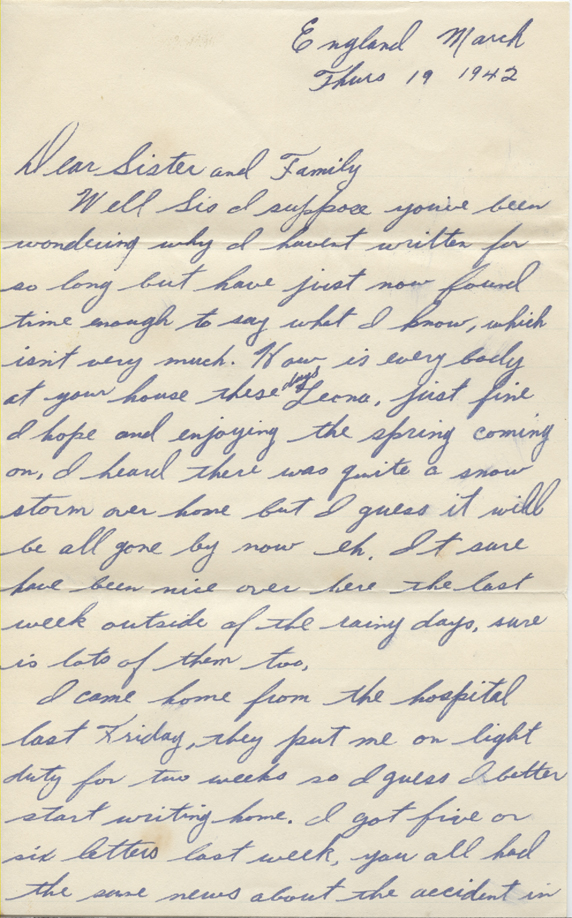 England March
Thurs 19 1942
Dear Sister and Family
Well Sis I suppose you've been
wondering why I havent written for
so long but have just now found
time enough to say what I know, which
isn't very much. How is every body
at your house these days Leona, just fine
I hope and enjoying the spring coming
on, I heard there was quite a snow
storm over home but I guess it will
be all gone by now eh. It sure
have been nice over here the last
week outside of the rainy days, sure
is lots of them too,
I came home from the hospital
last Friday, they put me on light
duty for two weeks so I guess I better
start writing home. I got five or
six letters last week, you all had
the same news about the accident in